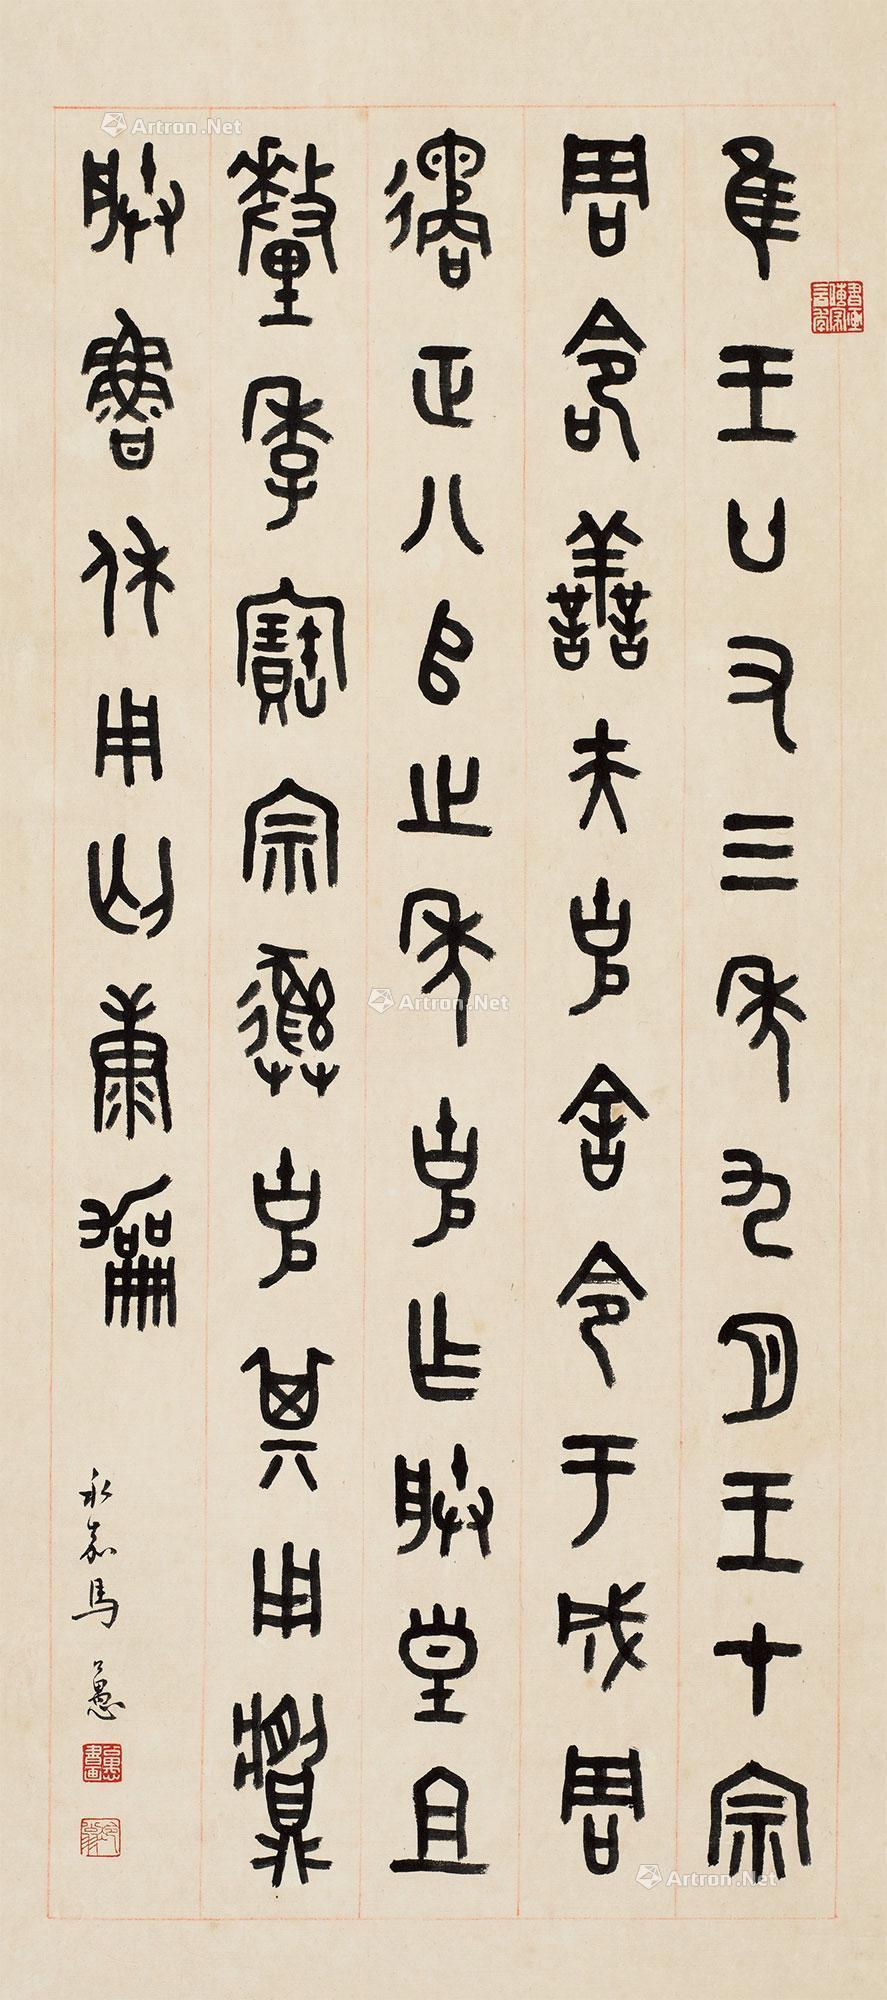 隹王廿又三年九月王才宗
周命善夫克舍令于成周
遹正八𠂤之年克乍朕皇且
釐季寶宗彝克其用𩰬
朕魯休用匄康
永嘉馬公愚
Artron.Net
Artron.Net
Artron.Net